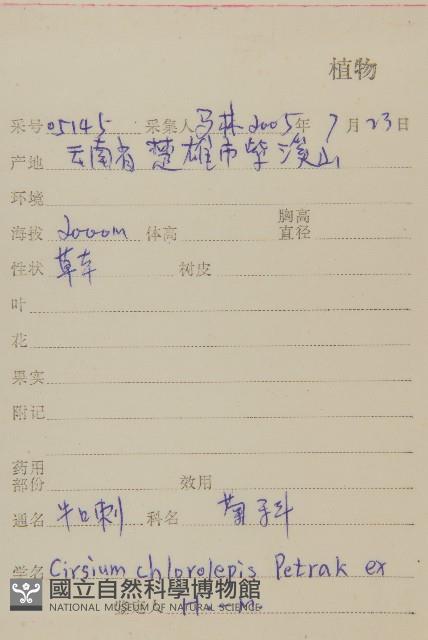 植物
采号 05145 采集人 马林 2005年 7月23日
产地 云南省楚雄市紫溪山
环境
海拔 2000m 体高 胸高直径
性状 草本 树皮
叶
花
果实
附记
药用部份 效用
通名 牛口刺 科名 菊科
学名 Cirsium chlorolepis Petrak ex
國立自然科學博物館
NATIONAL MUSEUM OF NATURAL SCIENCE
H.-M.